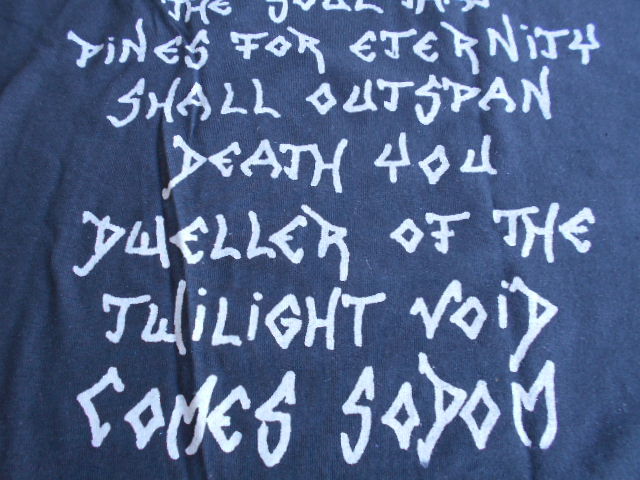 THE SOUL THAT
PINES FOR ETERNITY
SHALL OUTSPAN
DEATH YOU
DWELLER OF THE
TWILIGHT VOID
COMES SODOM